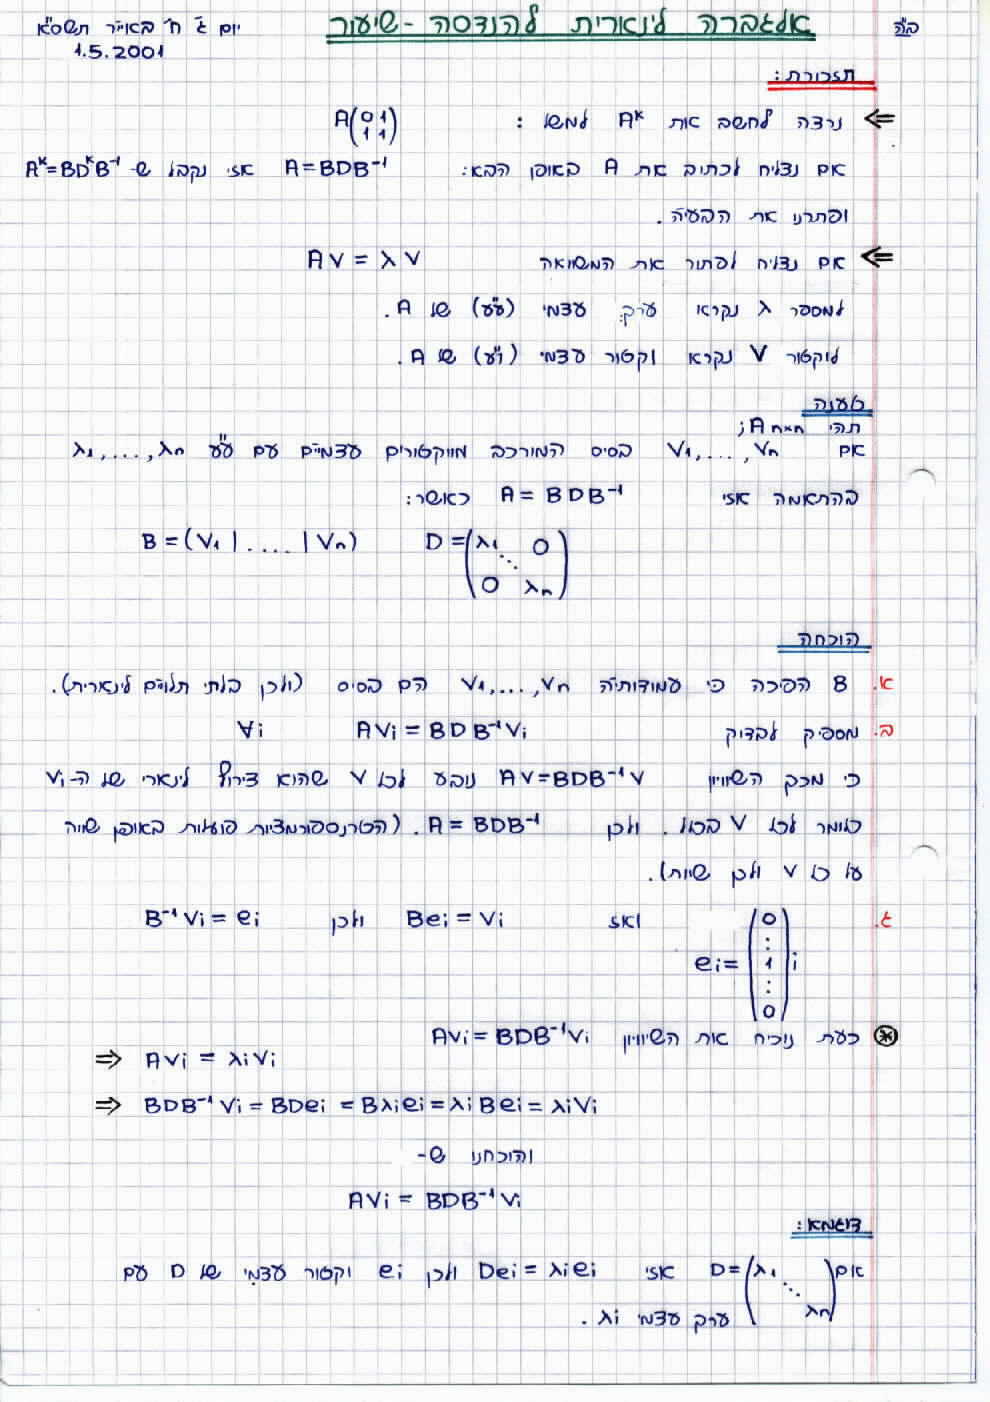 ב"ה
אלגברה לינארית להנדסה - שיעור
יום ג' ח' באייר תשס"א
1.5.2001
תזכורת:
⇐ נרצה לחשב את Aᵏ למשל : A(0 1
1 1)
אם נצליח לכתוב את A באופן הבא: A=BDB⁻¹ אזי נקבל ש- Aᵏ=BDᵏB⁻¹
ופתרנו את הבעיה.
⇐ אם נצליח לפתור את המשוואה AV = λV
למספר λ נקרא ערך עצמי (ע"ע) של A.
לוקטור V נקרא וקטור עצמי (ו"ע) של A.
טענה
תהי A n×n;
אם V₁,...,Vn בסיס המורכב מווקטורים עצמיים עם ע"ע λ₁,...,λn
בהתאמה אזי A = BDB⁻¹ כאשר:
B = (V₁ | .... | Vn) D = (λ₁ 0
⋱
0 λn)
הוכחה
א. B הפיכה כי עמודותיה V₁,...,Vn הם בסיס (ולכן בלתי תלויים לינארית).
ב. מספיק לבדוק AVi = BDB⁻¹Vi ∀i
כי מכך השוויון AV=BDB⁻¹V נובע לכל V שהוא צירוף לינארי של ה-Vi
כלומר לכל V בכלל. ולכן A = BDB⁻¹. (הטרנספורמציות פועלות באופן שווה
על כל V ולכן שוות).
ג. ei= (0
:
1
:
0) i ואז Bei = Vi ולכן B⁻¹Vi = ei
⊛ כעת נוכיח את השוויון AVi = BDB⁻¹Vi
⇒ AVi = λiVi
⇒ BDB⁻¹Vi = BDei = Bλiei = λiBei = λiVi
והוכחנו ש-
AVi = BDB⁻¹Vi
דוגמא:
אם D=(λ₁
⋱
λn) אזי Dei = λiei ולכן ei וקטור עצמי של D עם
ערך עצמי λi.